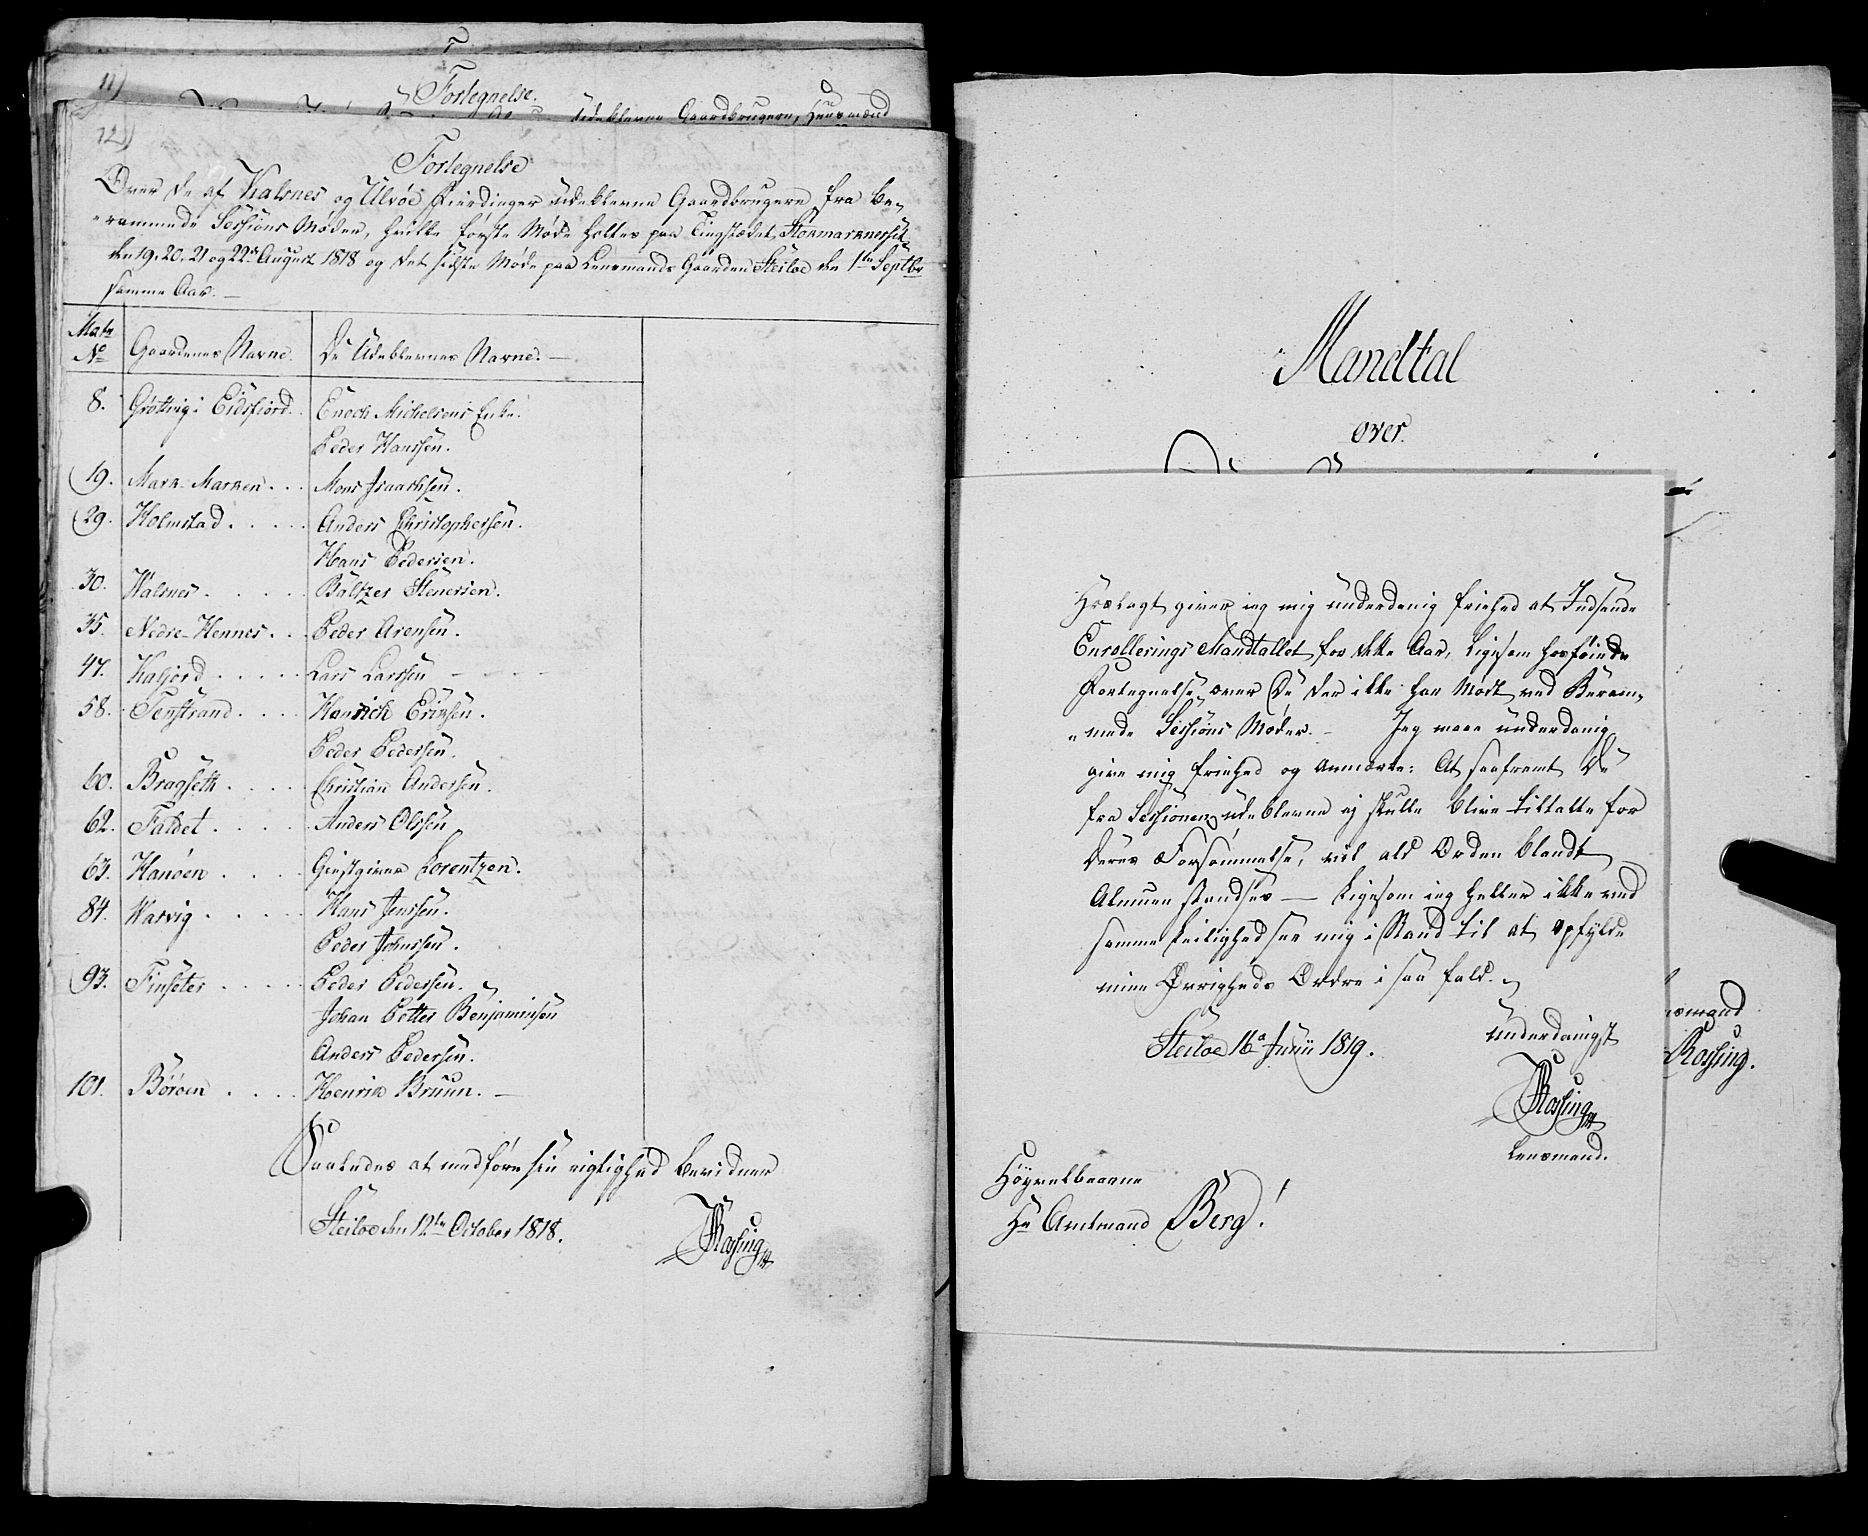 11)
Fortegnelse.
Udeblevne Gaardbrugere, Huusmænd
12)
Fortegnelse
Over de af Kalsnes og Ulvøe Fierdinger udeblevne Gaardbrugere fra be-
rammede Sessions Møder, hvilke første Møde holtes paa Tingstædet Stokmarknes
den 19. 20. 21 og 22de August 1818 og det sidste Møde paa Lensmands Gaarden Steiloe den 1te Septbr
samme Aar. —
Matr No Gaardenes Navne. De Udeblevnes Navne. —
8. Grøttvig i Eidsfiord. Enoch Michelsens Enke.
Peder Hanssen.
19. Mark-Marken . . . Mons Isaachsen.
29. Holmstad . . . . . Anders Christophersen.
Hans Pedersen.
30. Kalsnes . . . . . . Baltzer Stenersen.
35. Nedre-Hennes . . . Peder Arensen.
47. Kafjord . . . . . Lars Larssen
58. Tenstrand . . . . Henrich Eriksen.
Peder Pedersen.
60. Bragseth . . . . Christian Andersen.
62. Faldet . . . . . Anders Olssen
63. Hanøen . . . . . Giestgiver Lorentzen.
84. Warvig . . . . . Hans Jenssen.
Peder Johnssen.
93. Finsæter . . . . . Peder Pedersen.
Johan Petter Benjaminsen
Anders Pedersen.
101. Børøen . . . . Henrik Bruun. —
Saaledes at medføre sin rigtighed bevidner
Steiloe den 12te October 1818.
Røsting
Mandtal
over
Hoslagt giver jeg mig underdanig friehed at Indsende
Enrollerings Mandtallet for dette Aar, ligesom hosføiede
Fortegnelse over De, der ikke har Mødt ved Beram-
mede Sessions Møder. — Jeg maae underdanig
give mig friehed og anmærke: At saafremt De
fra Sessionen udeblevne ej skulle blive tiltalte for
Deres Forsømmelse, vil ald Orden blandt
Almuen standses — Ligesom jeg heller ikke ved
samme Leilighed seer mig i Stand til at opfylde
mine Øvrigheds Ordre i saa fald.
Steiloe 16de Junii 1819.
underdanigst
Røsting
Lensmand.
Høyvelbaarne
Hr Amtmand Berg!
Røsting.